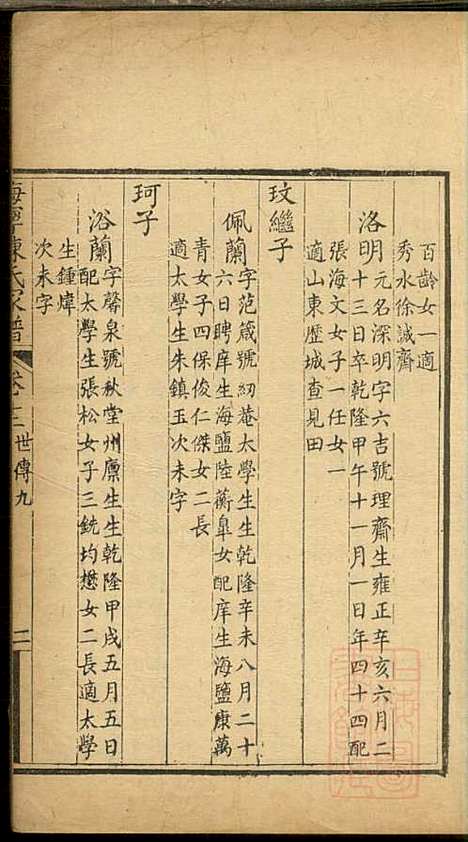 百齡女一適
秀水徐誠齋
洛明元名深明字六吉號理齋生雍正辛亥六月二
十三日卒乾隆甲午十一月一日年四十四配
張海文女子一任女一
適山東歷城查見田
玟繼子
佩蘭字范箴號紉菴太學生生乾隆辛未八月二十
六日聘庠生海鹽陸蘅臯女配庠生海鹽康萬
青女子四保俊仁傑女二長
適太學生朱鎮玉次未字
珂子
浴蘭字馨泉號秋堂州廩生生乾隆甲戌五月五日
配太學生張松女子三銑均懋女二長適太學
生鍾㢋
次未字
海寧陳氏家譜 卷十三 世傳九 二